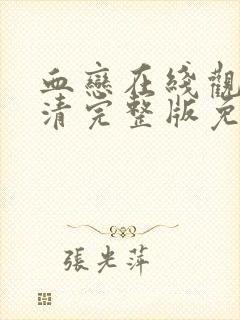 血戀在綫觀
清完整版免
張光萍